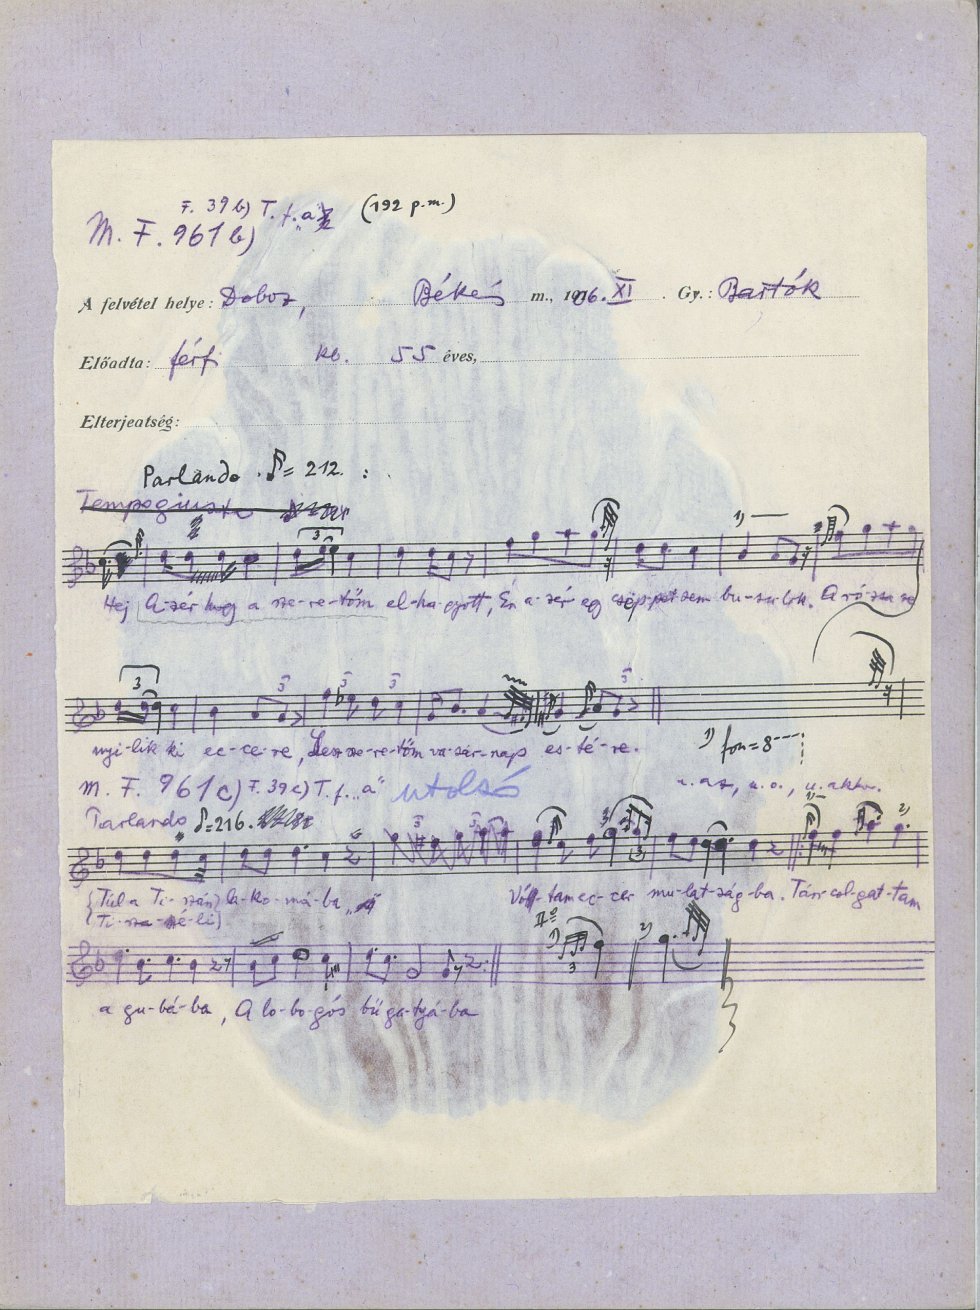 F. 39 b) T. f. a (192 p.m.)
M. F. 961 b)
A felvétel helye: Doboz, Békés m., 1906. XI. Gy.: Bartók
Előadta: férfi kb. 55 éves,
Elterjedtség:
Parlando ♪= 212.
Tempo giusto
3 1)
Hej A-zér hogy a sze-re-tőm el-ha-gyott, Én a-zér egy csöp-pet sem bu-sulok. A ró-zsa se
3 3 3 3 3
nyi-lik ki ec-ce-re, Lesz sze-re-tőm va-sár-nap es-té-re. 1) fon=8
M. F. 961 c) F. 39 c) T. f. „a" utolsó u. az, u. o., u. akkor.
Parlando ♪=216.
3 3 3 1) 2)
(Túl a Ti-szán) la-ko-má-ba Vót-tam ec-cer mu-lat-ság-ba. Társ-col-gat-tam
(Ti-sza-szé-li) IIº
1) 3 2)
a gu-bá-ba, A lo-bo-gós bő ga-tyá-ba